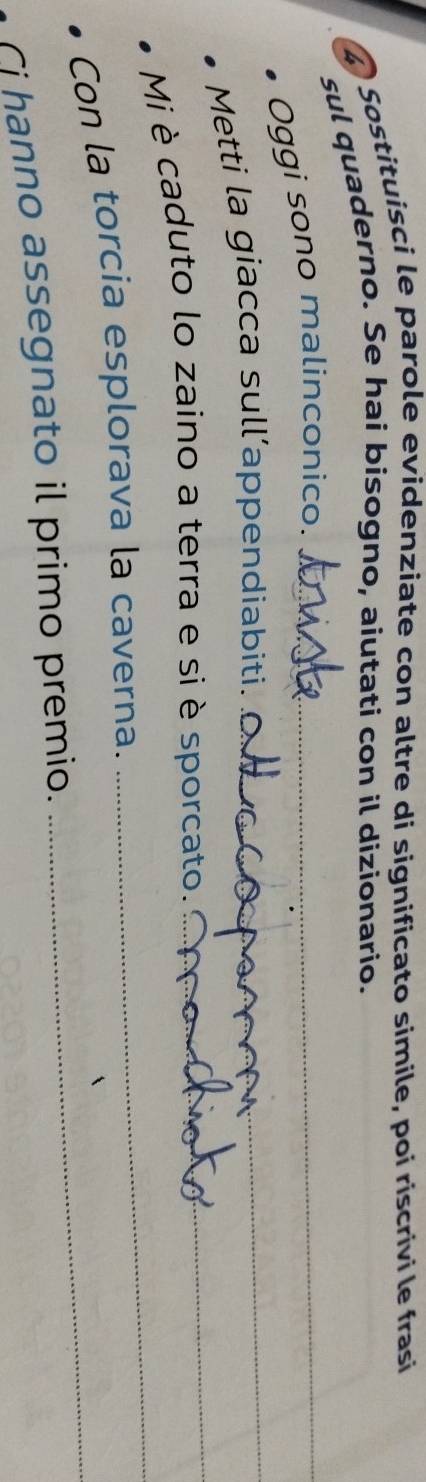 4 Sostituisci le parole evidenziate con altre di significato simile, poi riscrivi le frasi
sul quaderno. Se hai bisogno, aiutati con il dizionario.
• Oggi sono malinconico. triste
• Metti la giacca sull'appendiabiti. attaccapanni
• Mi è caduto lo zaino a terra e si è sporcato.
• Con la torcia esplorava la caverna.
• Ci hanno assegnato il primo premio.